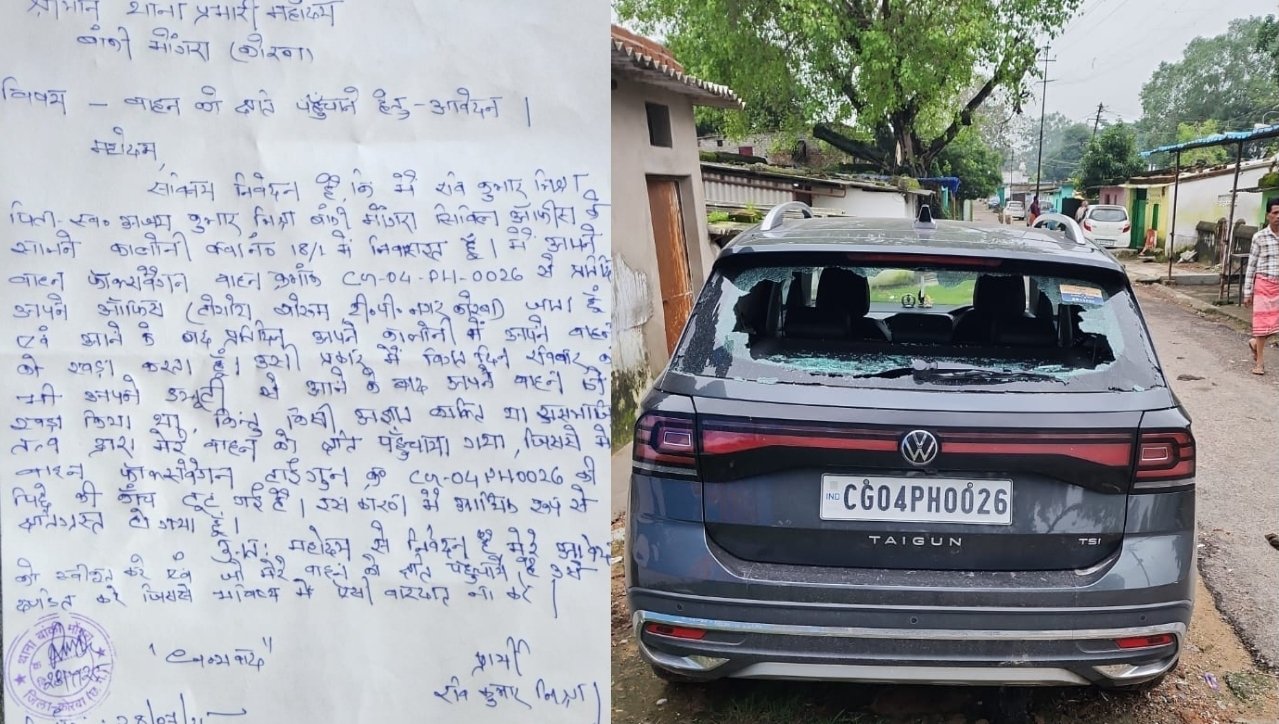 श्रीमान थाना प्रभारी महोदय
बांकी मोंगरा (कोरबा)
विषय - वाहन को क्षति पहुंचाने हेतु - आवेदन |
महोदय,
सविनय निवेदन है, कि मैं रवि कुमार मिश्रा
पिता- स्व० कुमार मिश्रा बांकी मोंगरा सिविल ऑफीस के
सामने कालोनी क्वा नं० 18/1 में निवासरत हूँ | मैं अपने
वाहन फॉक्सवैगन वाहन क्रमांक CG-04-PH-0026 से प्रतिदिन
अपने ऑफिस ( टी.पी. नगर कोरबा) जाता हूँ
एवं आने के बाद प्रतिदिन अपने कालोनी में अपने वाहन
को खड़ा करता हूँ | उसी प्रकार में दिन रविवार को
भी अपने ड्यूटी से आने के बाद अपने वाहन को
खड़ा किया था, किंतु किसी अज्ञात व्यक्ति या असामाजिक
तत्व द्वारा मेरे वाहन को क्षति पहुँचाया गया, जिससे मेरे
वाहन फॉक्सवैगन टाईगुन क्र० CG-04PH0026 की
पिछे की काँच टूट गई है | उस कारण मैं आर्थिक रूप से
क्षतिग्रस्त हो गया हूँ |
अतः महोदय से निवेदन है मेरे आवेदन
को स्वीकृत करें एवं जो मेरे वाहन को क्षति पहुंचाये है उसे
दण्डित करें जिससे भविष्य में ऐसी वारदात ना करें |
"धन्यवाद"
प्रार्थी
रवि कुमार मिश्रा
थाना बांकी मोंगरा
जिला-कोरबा (छ.ग.)
IND CG04PH0026
TAIGUN TSI